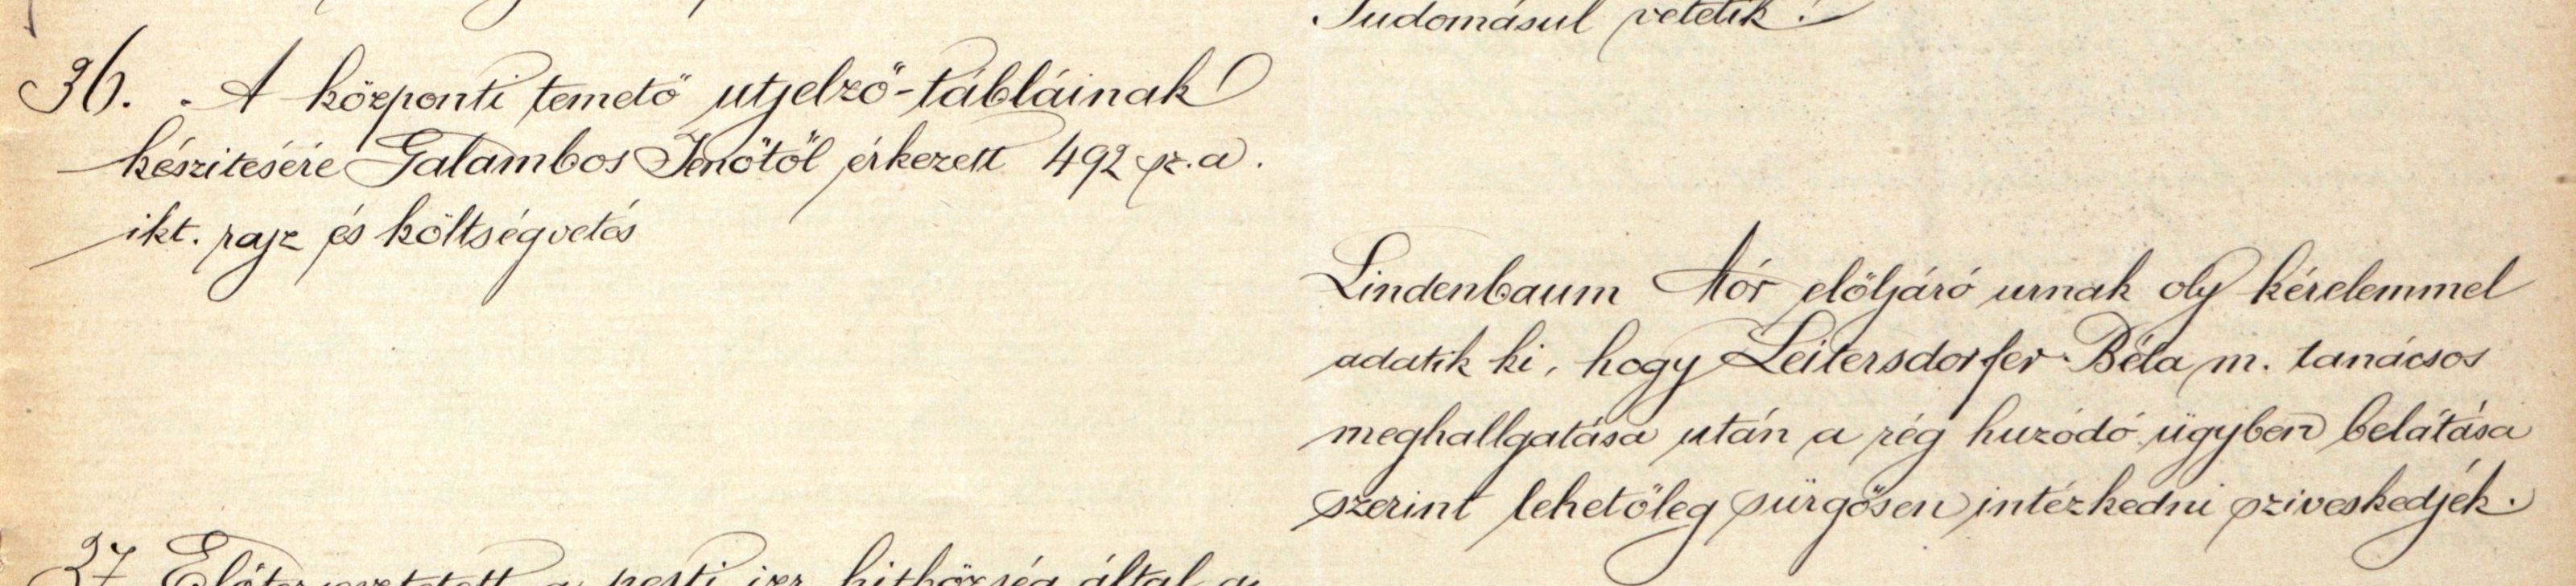 Tudomásul vétetik.
36. A központi temető utjelző-tábláinak
készitésére Galambos Jenőtől érkezett 492 sz. a.
ikt. rajz és költségvetés
Lindenbaum Mór elöljáró urnak oly kérelemmel
adatik ki, hogy Leitersdorfer Béla m. tanácsos
meghallgatása után a rég huzódó ügyben belátása
szerint lehetőleg sürgősen intézkedni sziveskedjék.
37 Előterjesztetett a pesti izr. hitközség által a